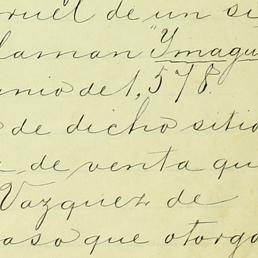 de un si
llaman "Ymagu
unio de 1,578.
de dicho sitio
de venta qu
Vazquez de
aso que otorga